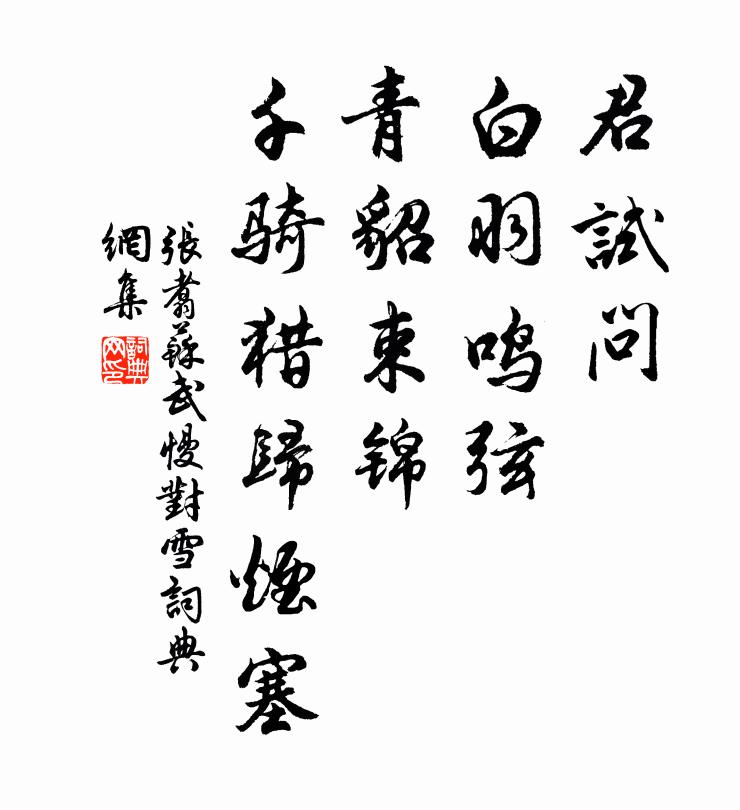 君試問
白羽鸣弦
青貂束锦
千骑猎歸煙塞
張翥蘇武慢對雪詞典
網集
詞典
网印